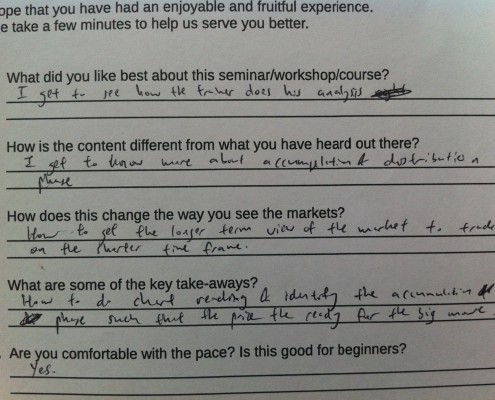 ope that you have had an enjoyable and fruitful experience.
e take a few minutes to help us serve you better.
What did you like best about this seminar/workshop/course?
I get to see how the trainer does his analysis
How is the content different from what you have heard out there?
I get to know more about accumulation & distribution
phase
How does this change the way you see the markets?
How to get the longer term view of the market to trade
on the shorter time frame.
What are some of the key take-aways?
How to do chart reading & identify the accumulation
phase such that the price the ready for the big move.
Are you comfortable with the pace? Is this good for beginners?
Yes.